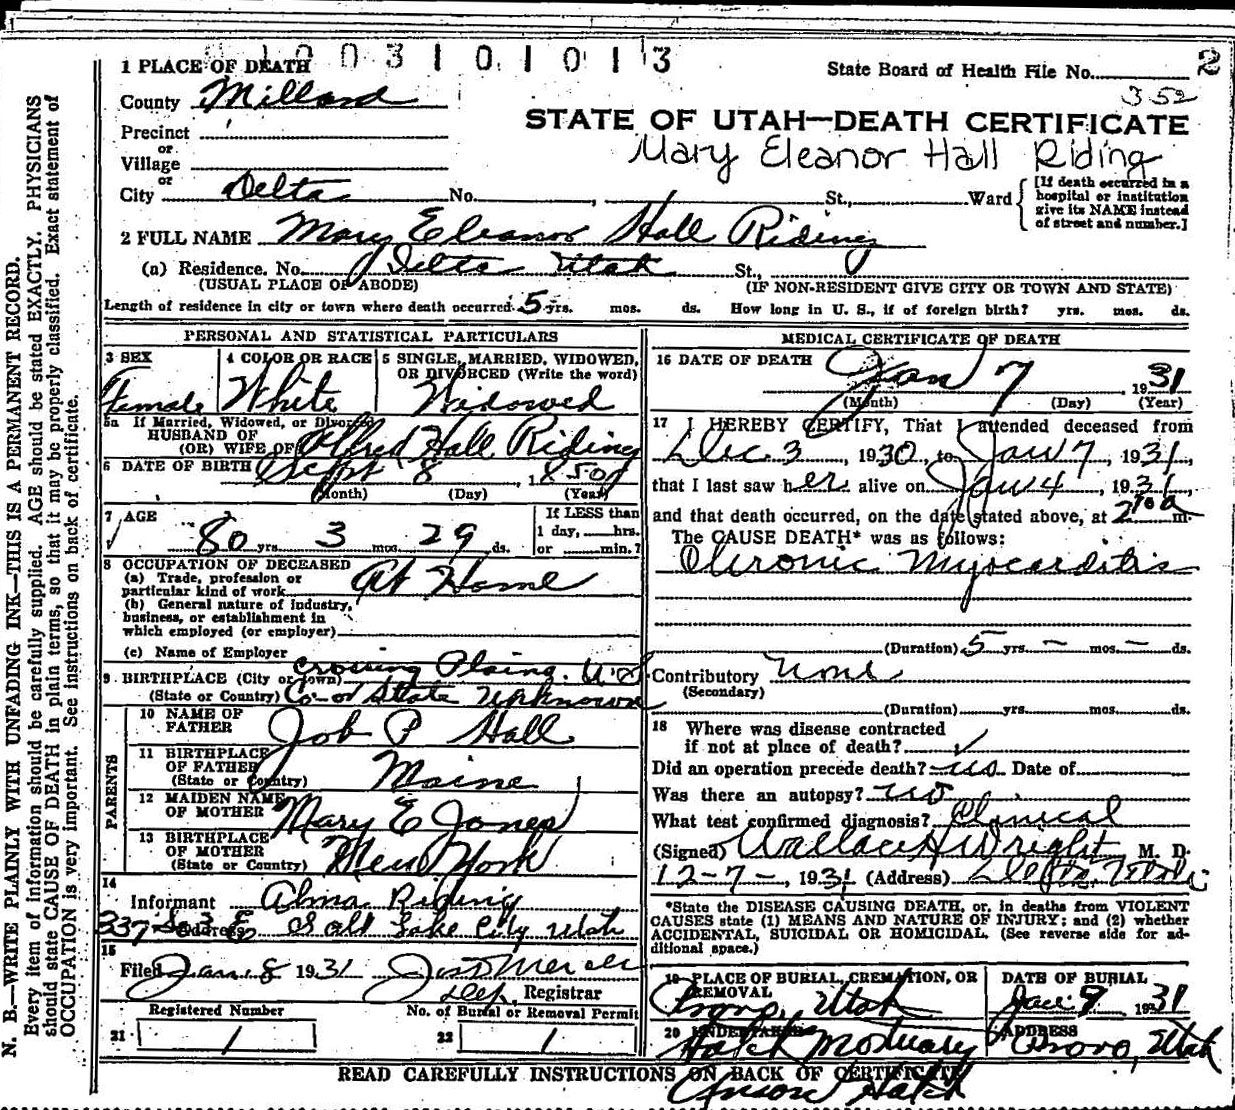 1 0 0 3 1 0 1 0 1 1 3
2
1 PLACE OF DEATH
State Board of Health File No.
352
County Millard
STATE OF UTAH—DEATH CERTIFICATE
Precinct
or
Village
Mary Eleanor Hall Riding
or
City Delta No. , St., Ward
[If death occurred in a hospital or institution give its NAME instead of street and number.]
2 FULL NAME Mary Eleanor Hall Riding
(a) Residence. No. Delta Utah St.,
(USUAL PLACE OF ABODE) (IF NON-RESIDENT GIVE CITY OR TOWN AND STATE)
Length of residence in city or town where death occurred 5 yrs. mos. ds. How long in U. S., if of foreign birth? yrs. mos. ds.
PERSONAL AND STATISTICAL PARTICULARS
3 SEX
Female
4 COLOR OR RACE
White
5 SINGLE, MARRIED, WIDOWED,
OR DIVORCED (Write the word)
Widowed
5a If Married, Widowed, or Divorced
HUSBAND OF
(OR) WIFE OF Alfred Hall Riding
6 DATE OF BIRTH Sept 8, 1850
(Month) (Day) (Year)
7 AGE
80 yrs. 3 mos. 29 ds.
If LESS than
1 day, hrs.
or min.?
8 OCCUPATION OF DECEASED
(a) Trade, profession or
particular kind of work At Home
(b) General nature of industry,
business, or establishment in
which employed (or employer)
(c) Name of Employer
9 BIRTHPLACE (City or Town) crossing Plains. U.S.
(State or Country) Co- or State Unknown
PARENTS
10 NAME OF
FATHER Job P Hall
11 BIRTHPLACE
OF FATHER
(State or Country) Maine
12 MAIDEN NAME
OF MOTHER Mary E Jones
13 BIRTHPLACE
OF MOTHER
(State or Country) New York
14
Informant Alma Riding
337 So 3 E Address Salt Lake City Utah
15
Filed Jan. 8 1931
Dep. Registrar
Registered Number
21 1
No. of Burial or Removal Permit
22 1
MEDICAL CERTIFICATE OF DEATH
16 DATE OF DEATH Jan 7 1931
(Month) (Day) (Year)
17 I HEREBY CERTIFY, That I attended deceased from
Dec. 3, 1930, to Jan 7, 1931,
that I last saw her alive on Jan 4, 1931,
and that death occurred, on the date stated above, at 2 100a m.
The CAUSE DEATH* was as follows:
Chronic Myocarditis
(Duration) 5 yrs. – mos. – ds.
Contributory None
(Secondary)
(Duration) yrs. mos. ds.
18 Where was disease contracted
if not at place of death?
Did an operation precede death? no Date of
Was there an autopsy? no
What test confirmed diagnosis? Clinical
(Signed) Wallace H Wright M. D.
12-7-, 1931 (Address) Delta, Utah
*State the DISEASE CAUSING DEATH, or, in deaths from VIOLENT
CAUSES state (1) MEANS AND NATURE OF INJURY; and (2) whether
ACCIDENTAL, SUICIDAL OR HOMICIDAL. (See reverse side for ad-
ditional space.)
19 PLACE OF BURIAL, CREMATION, OR
REMOVAL
Provo, Utah
DATE OF BURIAL
Jan. 9 1931
20 UNDERTAKER
Hatch Mortuary
ADDRESS
Provo, Utah
READ CAREFULLY INSTRUCTIONS ON BACK OF CERTIFICATE
Anson Hatch
N. B.—WRITE PLAINLY WITH UNFADING INK—THIS IS A PERMANENT RECORD.
Every item of information should be carefully supplied. AGE should be stated EXACTLY. PHYSICIANS
should state CAUSE OF DEATH in plain terms, so that it may be properly classified. Exact statement of
OCCUPATION is very important. See instructions on back of certificate.